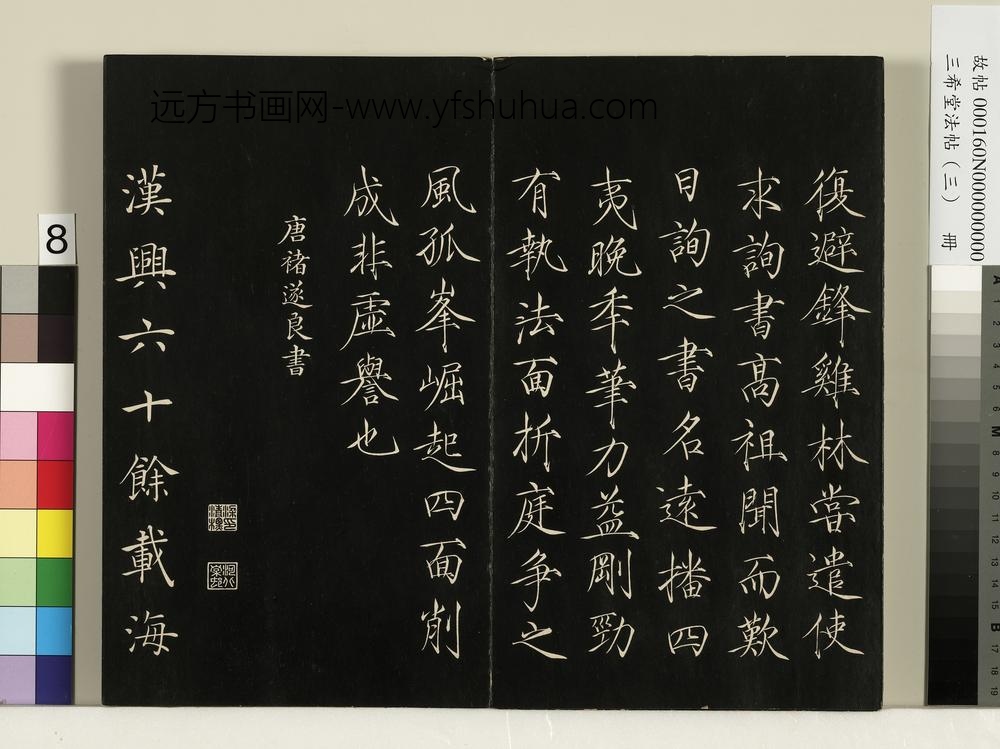 復避鋒雞林嘗遣使
求詢書高祖聞而歎
曰詢之書名遠播四
夷晚年筆力益剛勁
有執法面折庭爭之
風孤峯崛起四面削
成非虛譽也
唐褚遂良書
漢興六十餘載海
远方书画网-www.yfshuhua.com
故帖 000160N000000000
三希堂法帖（三） 冊
8